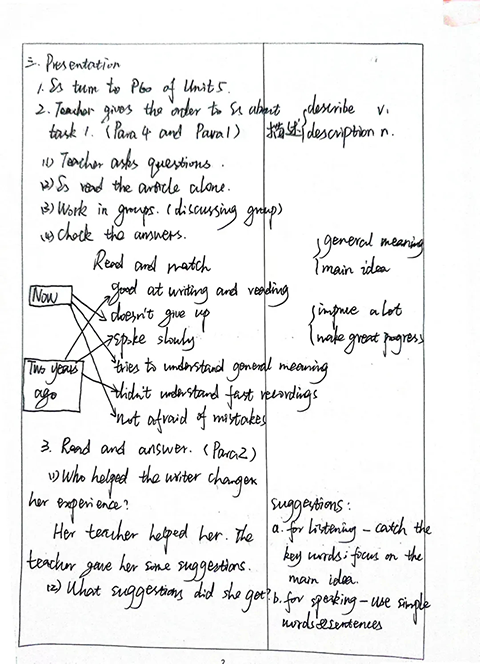 三. Presentation
1. Ss turn to P60 of Unit 5.
2. Teacher gives the order to Ss about
task 1. (Para 4 and Para 1)
(1) Teacher asks questions.
(2) Ss read the article alone.
(3) Work in groups. (discussing group)
(4) Check the answers.
Read and match
Now
good at writing and reading
doesn't give up
spoke slowly
Two years
ago
tries to understand general meaning
didn't understand fast recordings
not afraid of mistakes
3. Read and answer. (Para 2)
(1) Who helped the writer change
her experience?
Her teacher helped her. The
teacher gave her some suggestions.
(2) What suggestions did she get?
describe v.
描述
description n.
general meaning
main idea
a lot
make great progress
suggestions:
a. for listening - catch the
key words; focus on the
main idea.
b. for speaking - use simple
words & sentences